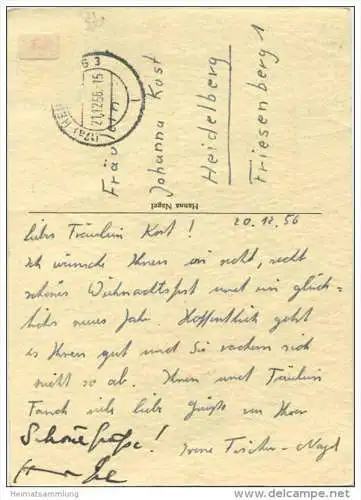 (17a) HEI
21.12.56.15
Fräulein
Johanna Kost
Heidelberg
Friesenberg 1
Hanna Nagel
20.12.56
liebes Fräulein Kost!
ich wünsche Ihnen ein recht, recht
schönes Weihnachtsfest und ein glück-
liches neues Jahr. Hoffentlich geht
es Ihnen gut und Sie rackern sich
nicht so ab. Ihnen und Fräulein
viele liebe Grüße von Ihrer
Schöne Grüße! Irene Fischer-Nagel
Heimatsammlung